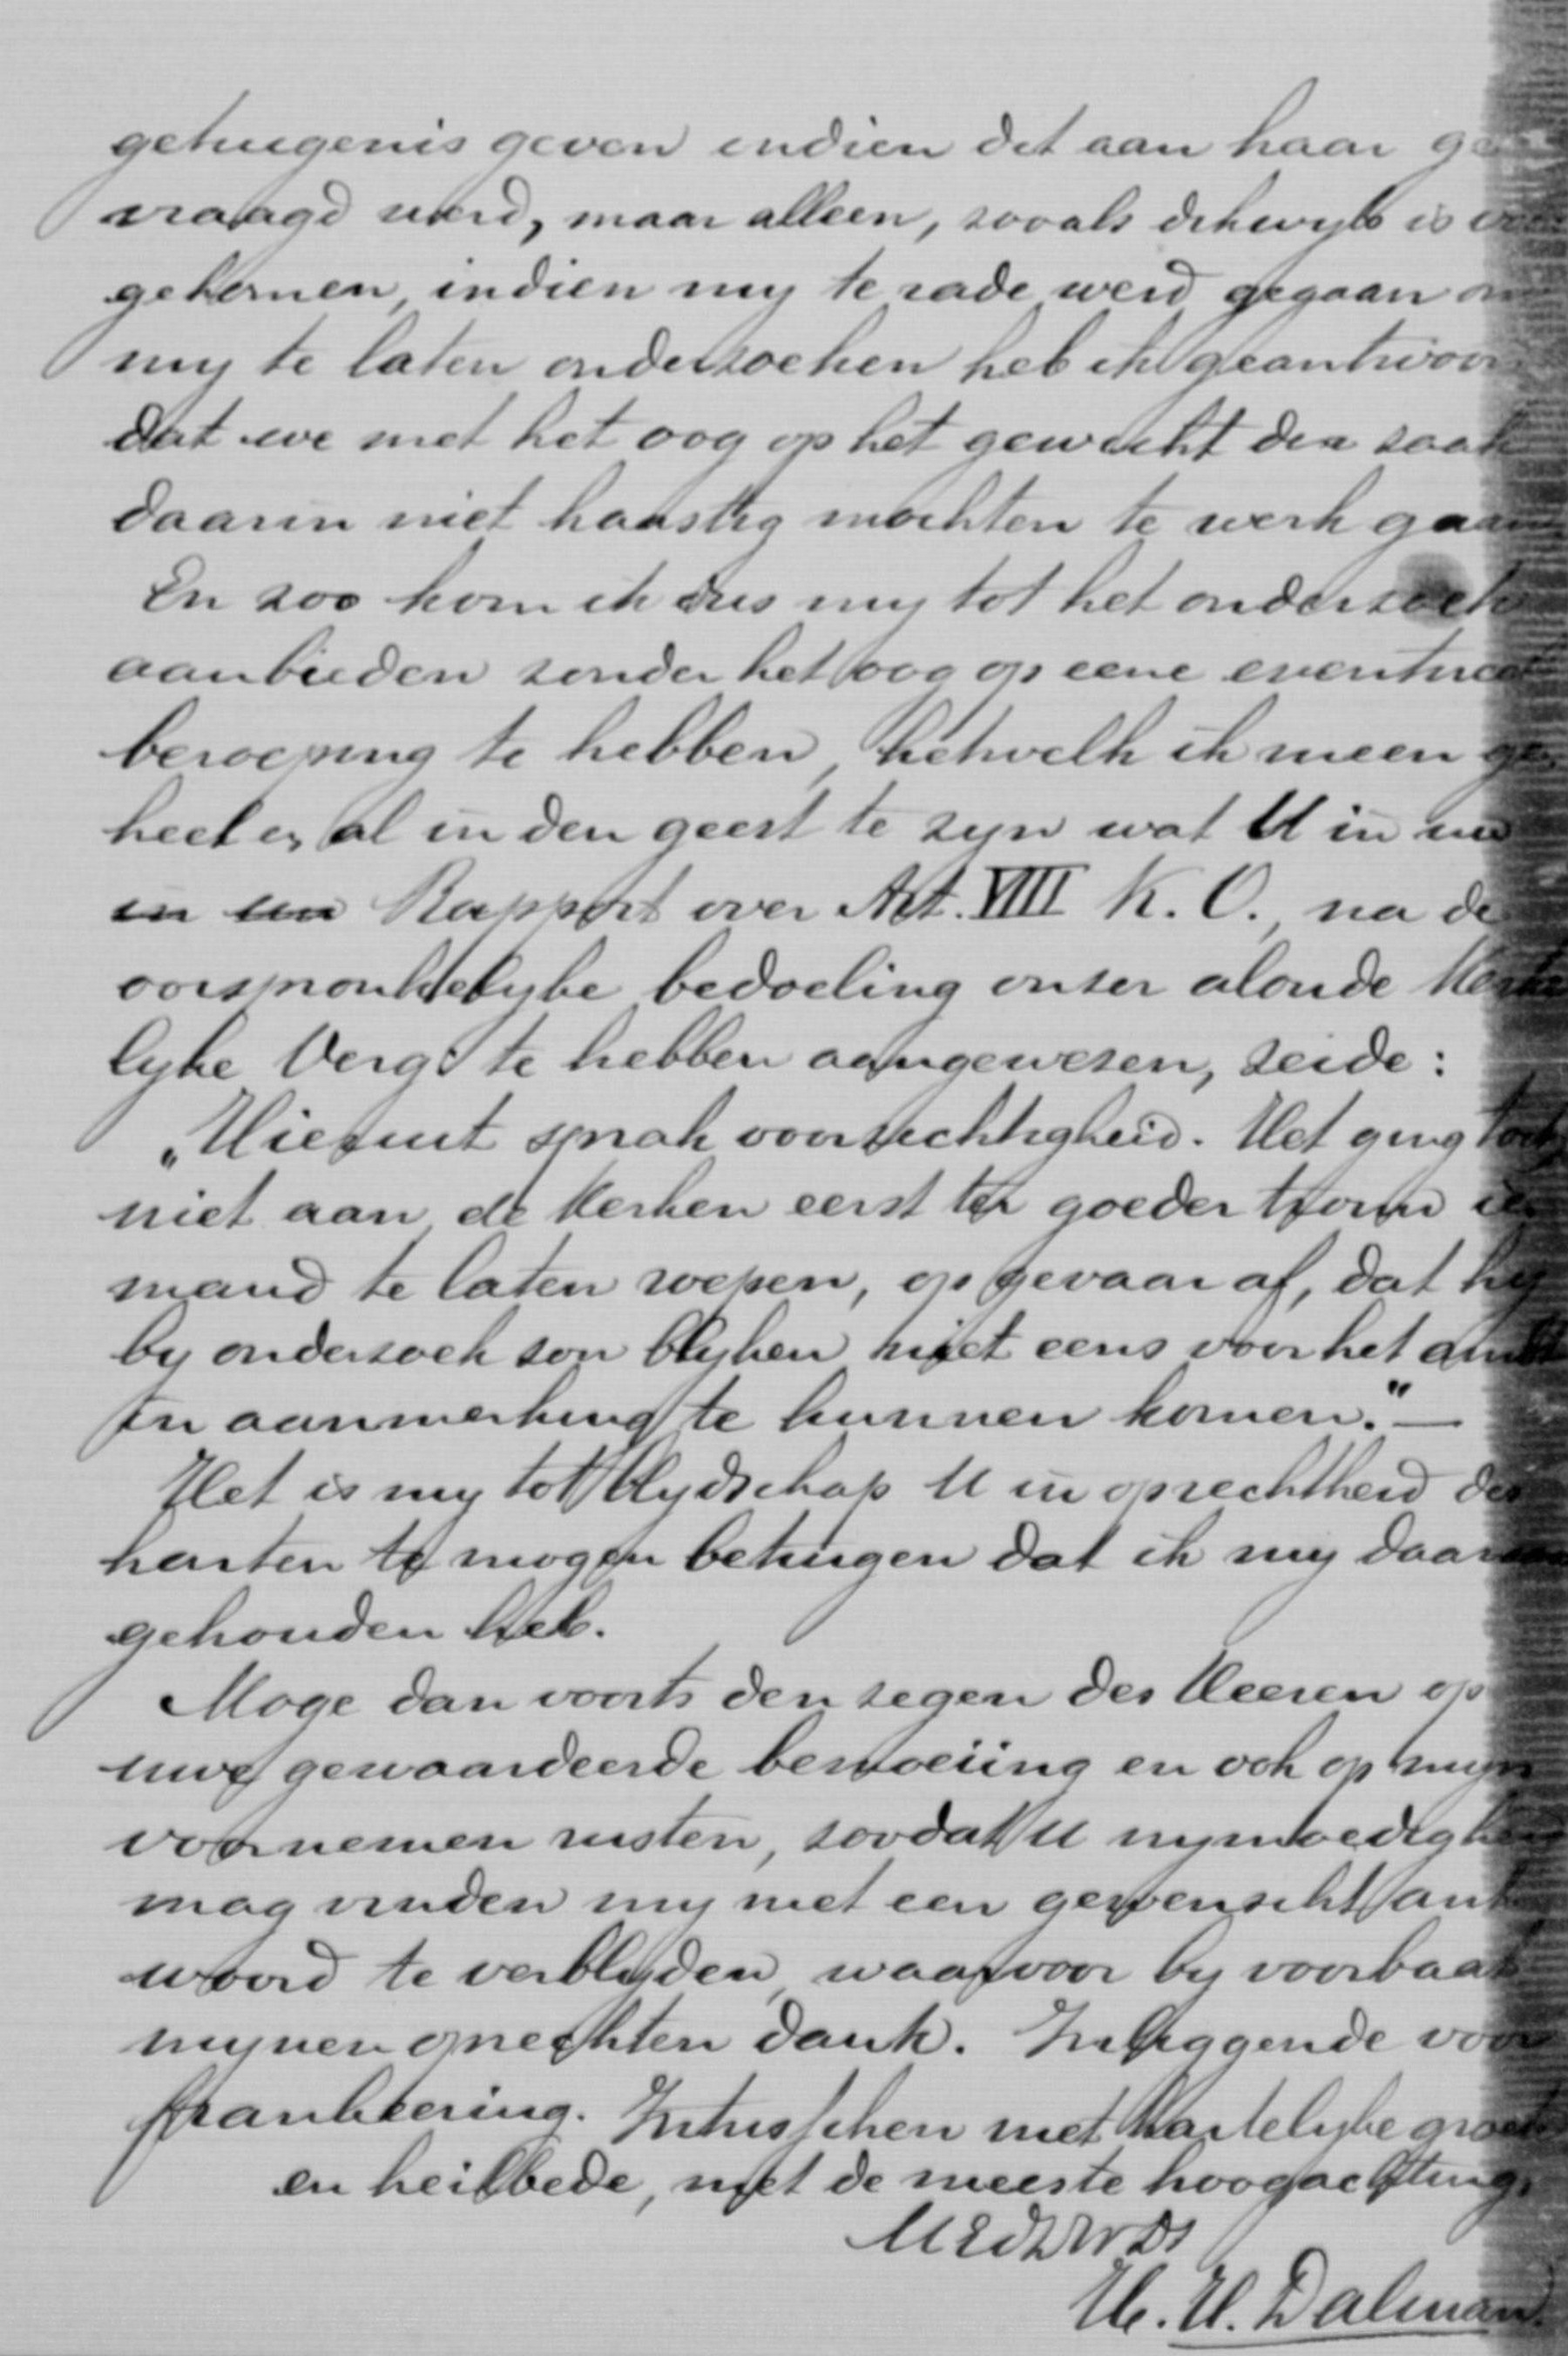 getuigenis geven indien dit aan haar ge
vraagd werd, maar alleen, zooals dikwyls is voor
gekomen, indien my te rade werd gegaan om
my te laten onderzoeken heb ik geantwoord
dat we met het oog op het gewicht der zaak
daarin niet haastig mochten te werk gaan
En zoo kom ik dus my tot het onderzoek
aanbieden zonder het oog op eene eventueele
beroeping te hebben, hetwelk ik meen ge
heel en al in den geest te zyn wat U in uw
in uw Rapport over Art. VIII K. O., na de
oorspronkelyke bedoeling onzer aloude Kerke
lyke Verg: te hebben aangewezen, zeide:
„Hieruit sprak voorzichtigheid. Het ging toch
niet aan de Kerken eerst ter goeder trouw ie
mand te laten roepen, op gevaar af, dat hy
by onderzoek zou blyken niet eens voor het ambt
in aanmerking te kunnen komen."—
Het is my tot blydschap U in oprechtheid des
harten te mogen betuigen dat ik my daaraan
gehouden heb.
Moge dan voorts den zegen des Heeren op
uwe gewaardeerde bemoeiing en ook op myn
voornemen rusten, zoodat U vrymoedigheid
mag vinden my met een gewenscht ant
woord te verblyden, waarvoor by voorbaat
mynen oprechten dank. Inliggende voor
frankeering. Intusschen met hartelyke groet
en heilbede, met de meeste hoogachting,
UEdDwDr
H. H. Dalman